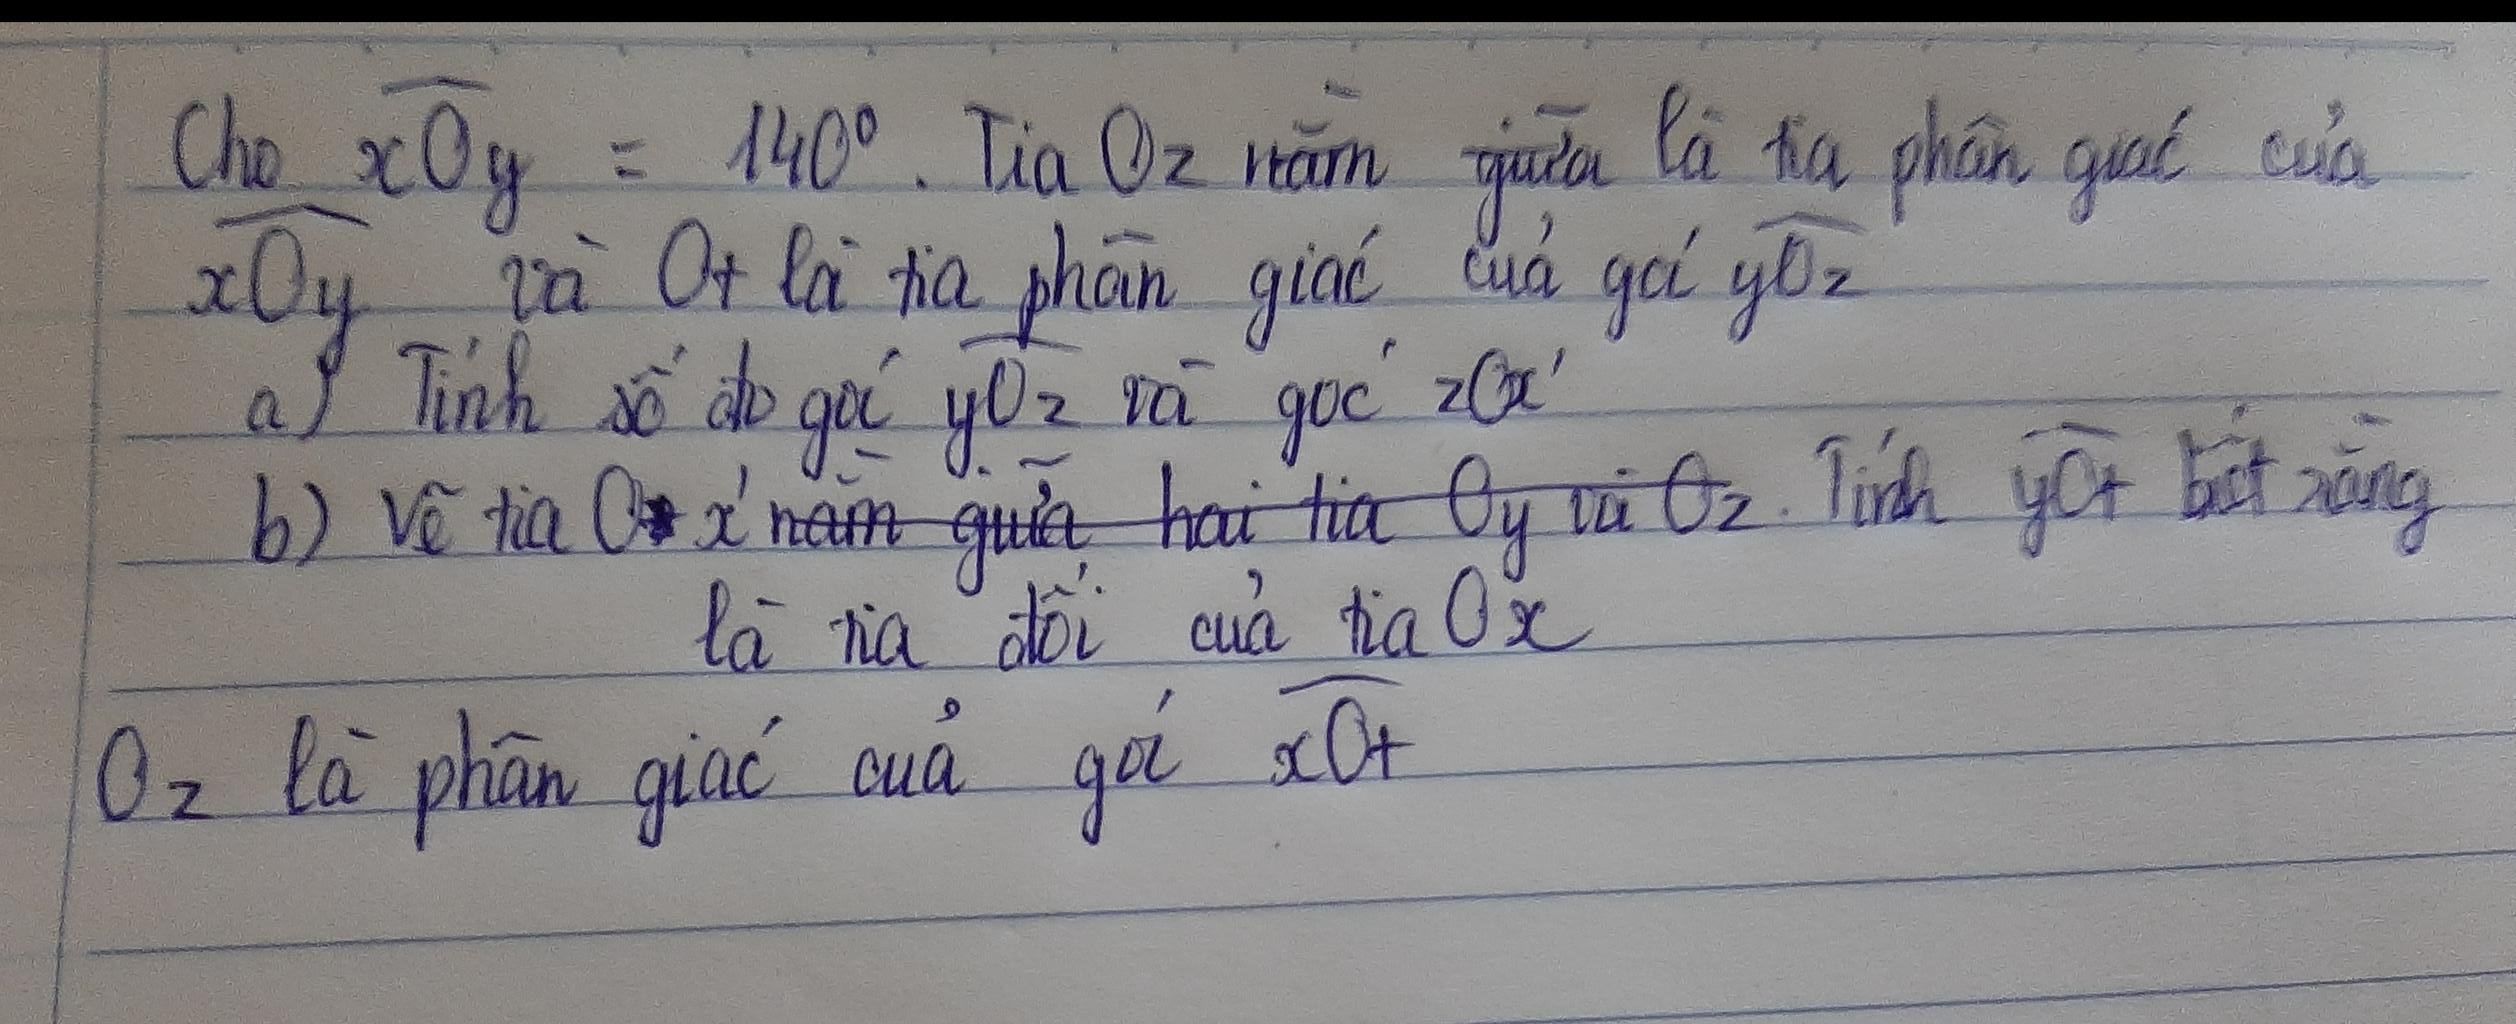 Cho xOy = 140°. Tia Oz nằm giữa là tia phân giác của
xOy và Ot là tia phân giác của góc yOz
a) Tính số đo góc yOz và góc zOx'
b) Vẽ tia Ox' nằm giữa hai tia Oy và Oz. Tính yOt biết rằng
là tia đối của tia Ox
Oz là phân giác của góc xOt